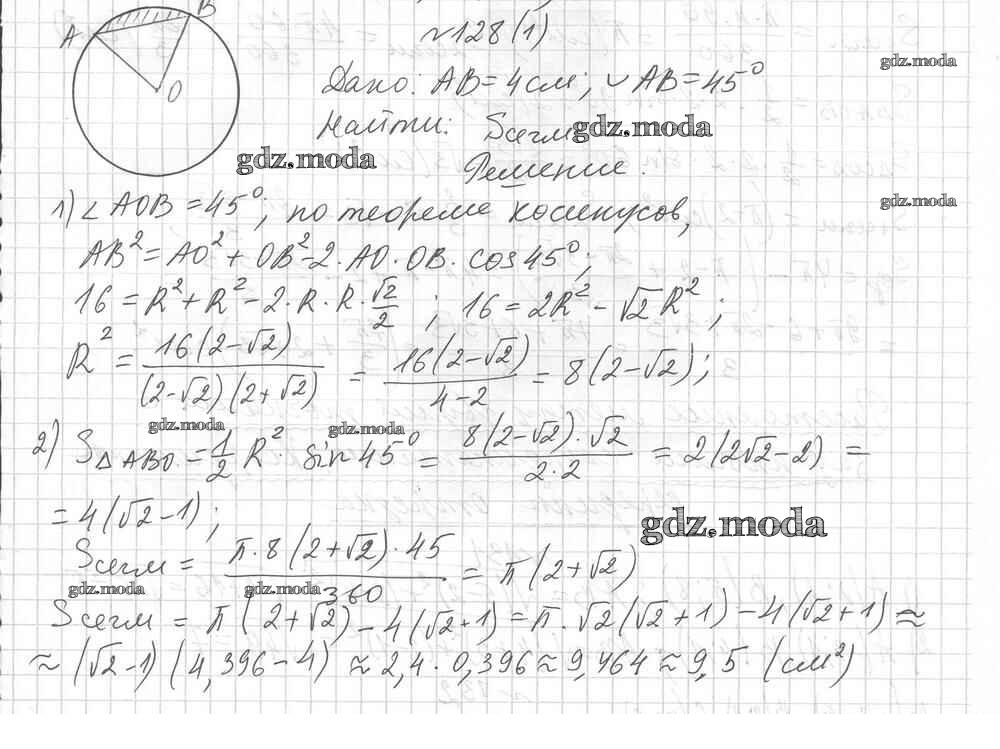 A B
O
№128(1)
gdz.moda
Дано: AB = 4 см; ◡AB = 45°
Найти: Sсегм gdz.moda
gdz.moda
Решение.
gdz.moda
1) ∠AOB = 45°; по теореме косинусов,
AB² = AO² + OB² - 2·AO·OB·cos45°;
16 = R² + R² - 2·R·R·√2/2; 16 = 2R² - √2R²;
R² = 16(2-√2)/((2-√2)(2+√2)) = 16(2-√2)/(4-2) = 8(2-√2);
gdz.moda gdz.moda
2) S△ABO = 1/2 R²·sin45° = 8(2-√2)·√2/(2·2) = 2(2√2-2) =
= 4(√2-1);
gdz.moda
Sсегм = π·8(2+√2)·45/360 = π(2+√2)
gdz.moda gdz.moda
Sсегм = π(2+√2) - 4(√2+1) = π·√2(√2+1) - 4(√2+1) ≈
≈ (√2-1)(4,396-4) ≈ 2,4·0,396 ≈ 9,464 ≈ 9,5 (см²)